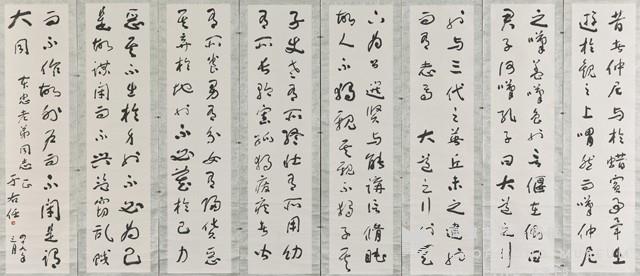 昔者仲尼与於蜡賓事畢出
遊於觀之上喟然而嘆仲尼
之嘆蓋嘆魯也言偃在側曰
君子何嘆孔子曰大道之行
也与三代之英丘未之逮也
而有志焉 大道之行也天
下為公選賢与能講信脩睦
故人不獨親其親不獨子其
子使老有所終壯有所用幼
有所長矜寡孤獨廢疾者皆
有所養男有分女有歸貨惡
其棄於地也不必藏於己力
惡其不出於身也不必為己
是故謀閉而不興盜竊亂賊
而不作故外戶而不閉是謂
大同
忠老弟同志正
于右任
三月